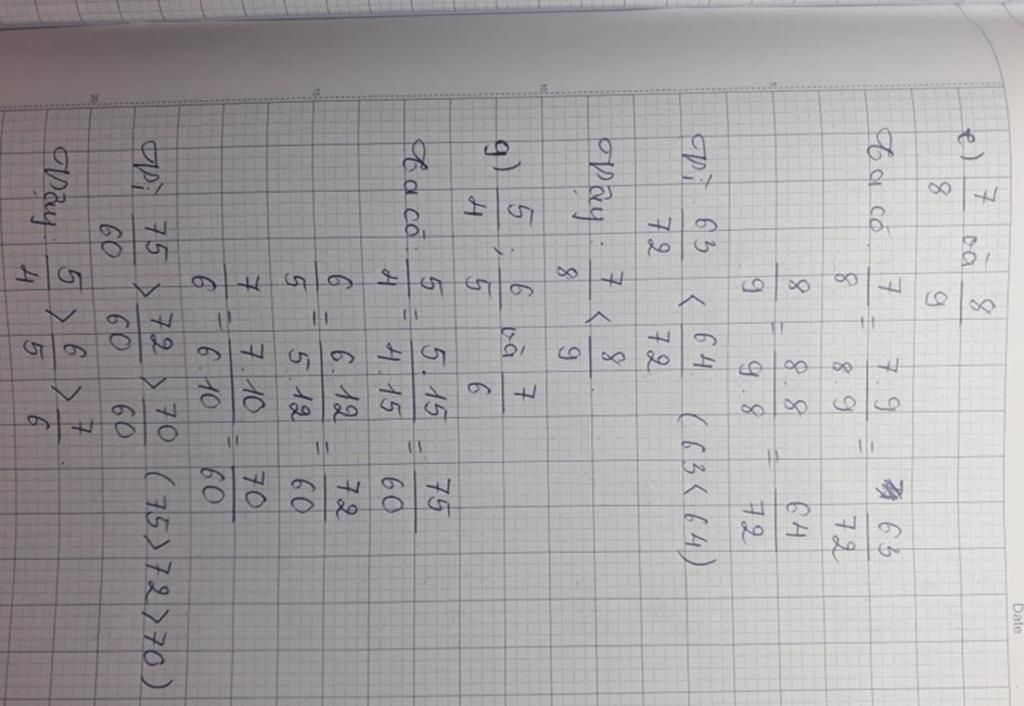 Date
e) 7/8 và 8/9
Ta có 7/8 = 7.9/8.9 = 63/72
8/9 = 8.8/9.8 = 64/72
Vì 63/72 < 64/72 (63 < 64)
Vậy: 7/8 < 8/9
g) 5/4 ; 6/5 và 7/6
Ta có: 5/4 = 5.15/4.15 = 75/60
6/5 = 6.12/5.12 = 72/60
7/6 = 7.10/6.10 = 70/60
Vì 75/60 > 72/60 > 70/60 (75 > 72 > 70)
Vậy: 5/4 > 6/5 > 7/6